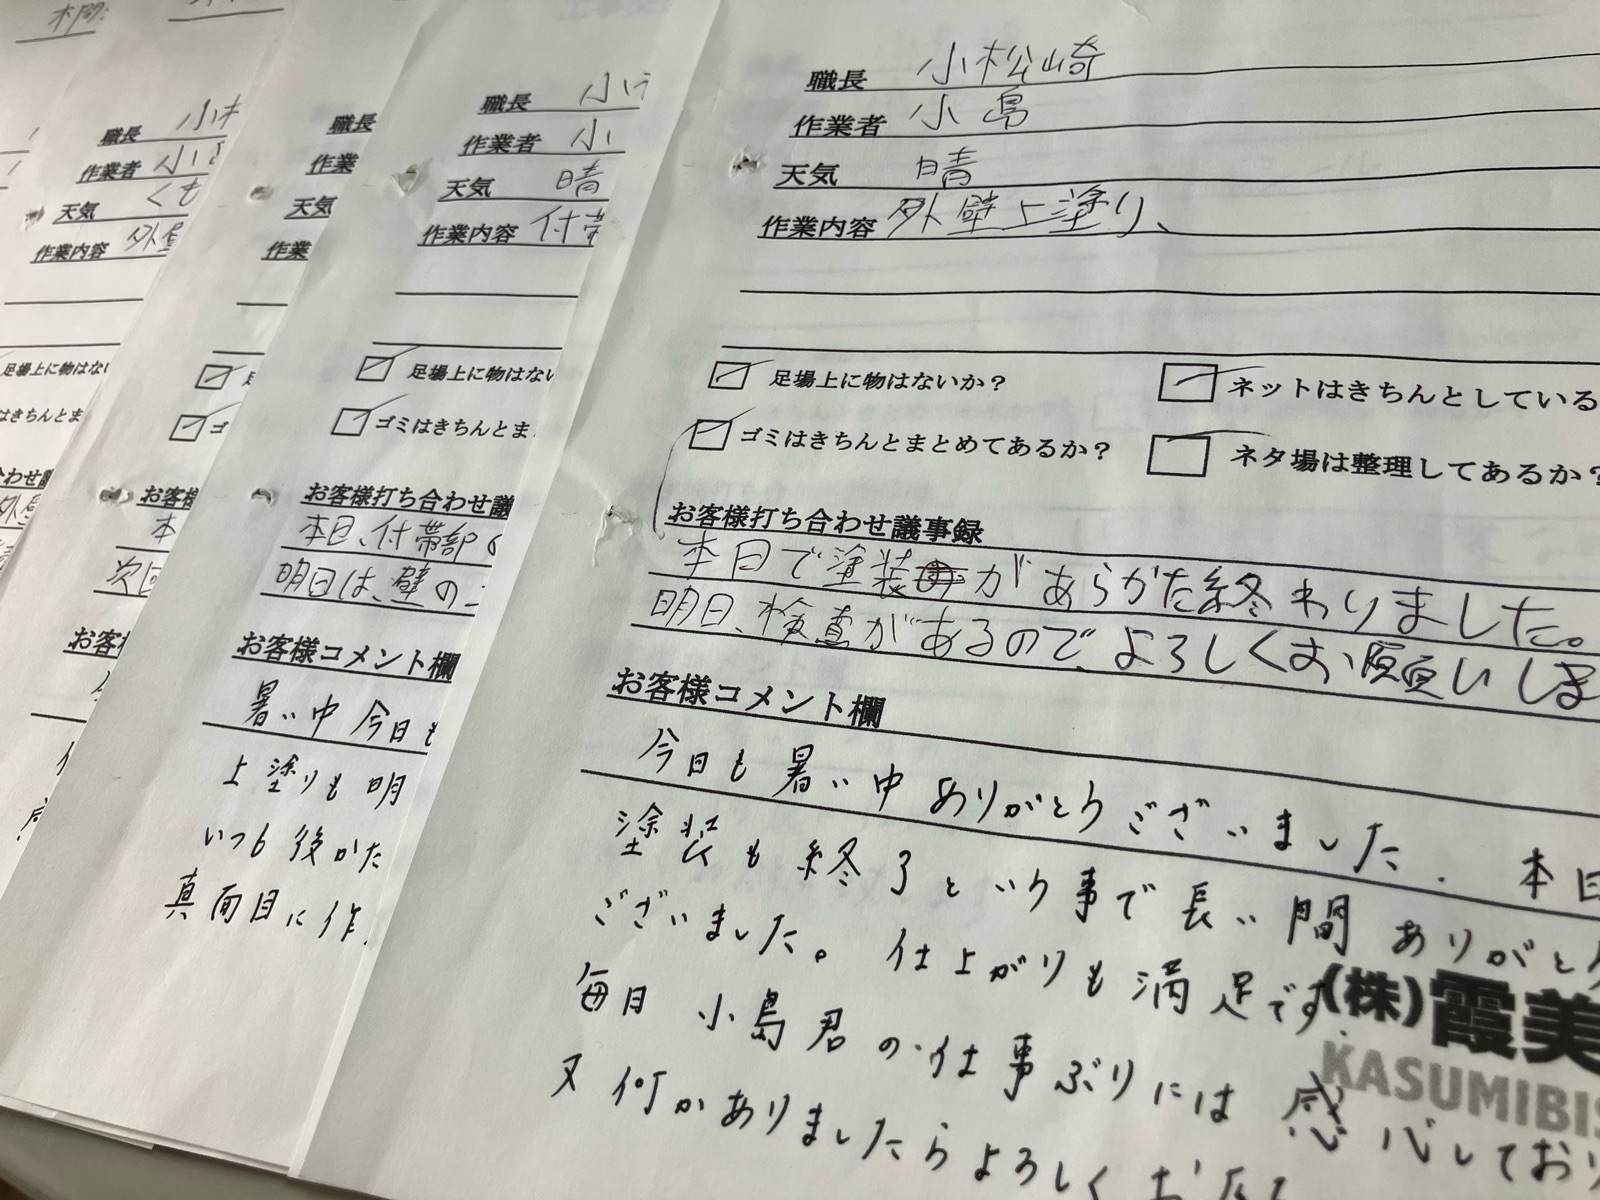 職長 小松崎
作業者 小島
天気 晴
作業内容 外壁上塗り、
足場上に物はないか? ネットはきちんとしている
ゴミはきちんとまとめてあるか? ネタ場は整理してあるか?
お客様打ち合わせ議事録
本日で塗装があらかた終わりました。
明日、検査があるので、よろしくお願いしま
お客様コメント欄
今日も暑い中ありがとうございました. 本日
塗装も終了という事で長い間ありがとう
ございました。仕上がりも満足です.
毎日 小島君の仕事ぶりには感心しており
又何かありましたらよろしく
(株)霞美
KASUMIBI
職長
作業者 小
天気 晴
作業内容 付帯
足場上に物はない
ゴミはきちんとま
お客様打ち合わせ議
本日、付帯部の
明日は、壁の
お客様コメント欄
暑い中 今日も
上塗りも明
いつも後かた
真面目に作
職長
作業
天気
作業
ゴ
お客様
本
次回
お客様
職長 小松
作業者 小島
天気 くも
作業内容 外壁
足場上に物はない
はきちんとま
合わせ議
外壁
本間